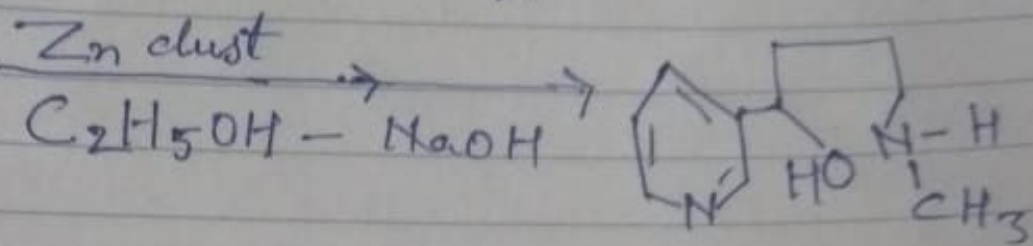 Zn dust
C2H5OH - NaOH
N
HO
N-H
CH3